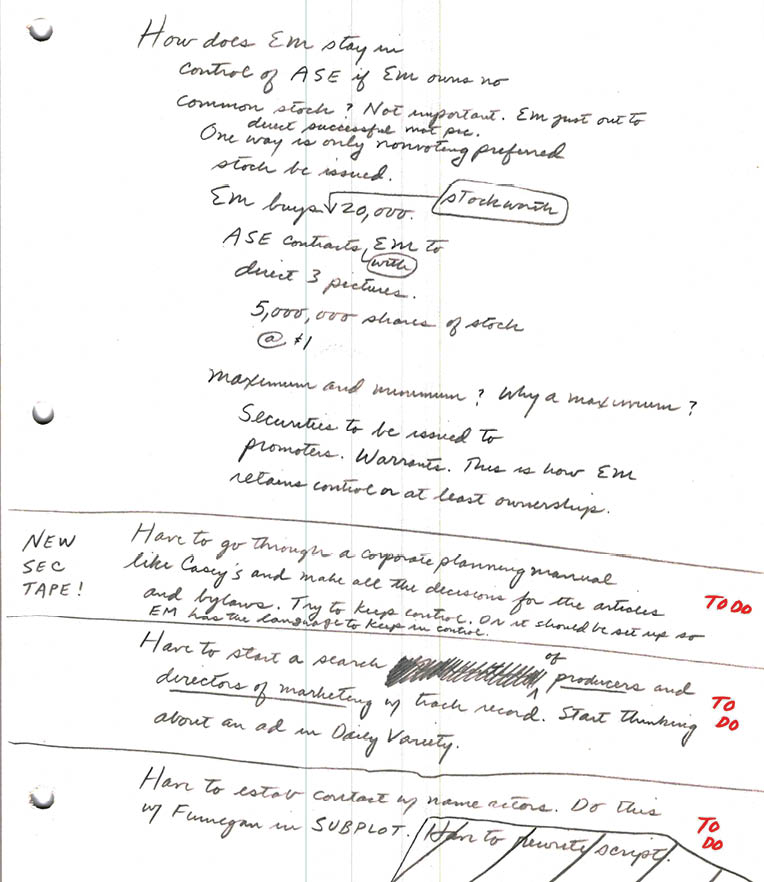 How does EM stay in
control of ASE if EM owns no
common stock? Not important. EM just out to
direct successful mot pic.
One way is only nonvoting preferred
stock be issued.
EM buys 20,000. stock worth
ASE contracts, EM to
with
direct 3 pictures.
5,000,000 shares of stock
@ $1
Maximum and minimum? Why a maximum?
Securities to be issued to
promoters. Warrants. This is how EM
retains control or at least ownership.
NEW
SEC
TAPE!
Have to go through a corporate planning manual
like Casey's and make all the decisions for the articles
and bylaws. Try to keep control. Or it should be set up so
EM has the language to keep in control.
TO DO
Have to start a search of producers and
directors of marketing w/ track record. Start thinking
about an ad in Daily Variety.
TO
DO
Have to estab contact w/ name actors. Do this
w/ Funegan in SUBPLOT. Have to rewrite script.
TO
DO